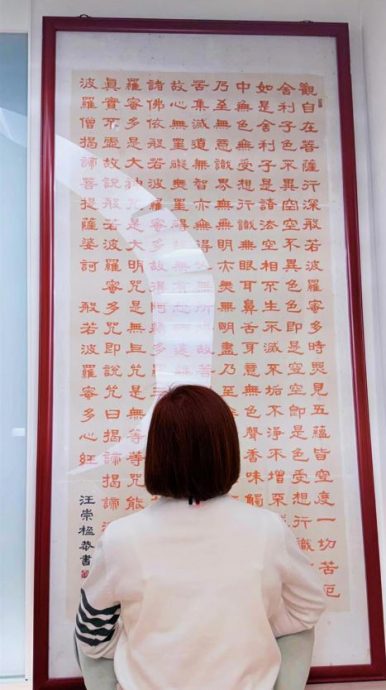 觀自在菩薩行深般若波羅蜜多時照見五蘊皆空度一切苦厄
舍利子色不異空空不異色色即是空空即是色受想行識
如是舍利子是諸法空相不生不滅不垢不淨不增不
中無色無受想行識無眼耳鼻舌身意無色聲香味觸
乃至無意識界無無明亦無無明盡乃至
苦集滅道無智亦無得以無所得故菩
故心無罣礙無罣礙故無有恐怖遠離
諸佛依般若波羅蜜多故得阿耨多羅
羅蜜多是大神咒是大明咒是無上咒是無等等咒能
真實不虛故說般若波羅蜜多咒即說咒曰揭諦揭諦波
波羅僧揭諦菩提薩婆訶 般若波羅蜜多心經
汪崇楹恭書